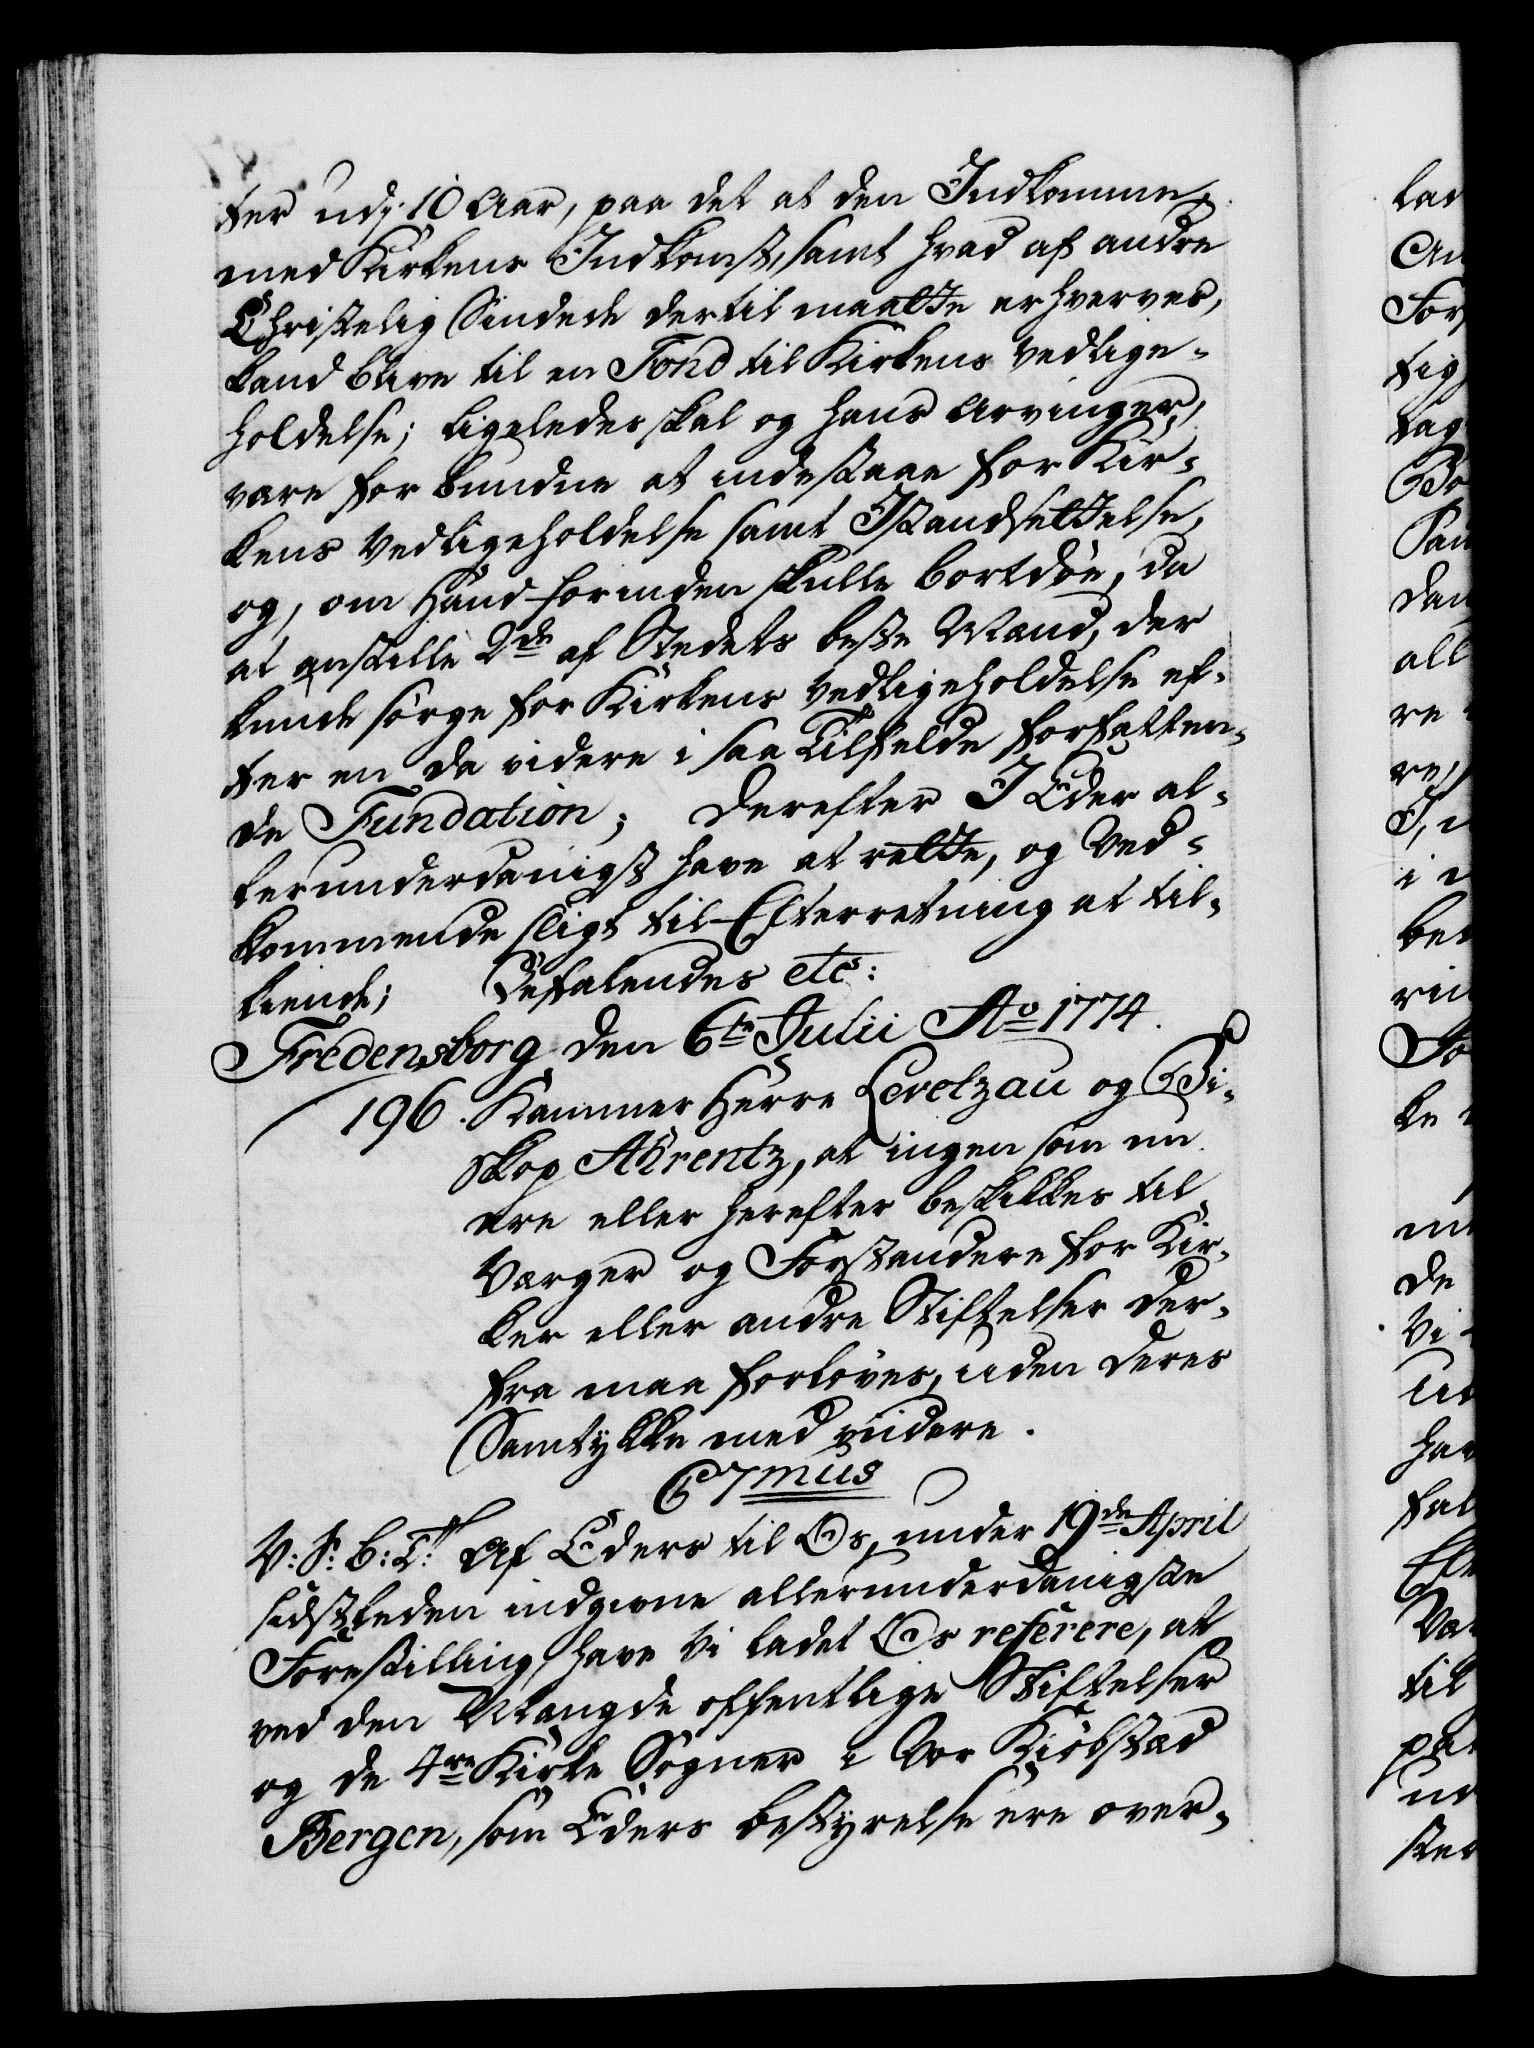 ter udj 10 Aar, paa det at den Indkomme,
med Kirkens Indkomst, samt hvad af andre
Christelig Sindede dertil maatte erhverves,
kand blive til en Fond til Kirkens Vedlige-
holdelse; ligeledes skal og hans Arvinger,
være forbundne at indestaae for Kir-
kens Vedligeholdelse samt Istandsettelse,
og, om Hand forinden skulle bortdøe, da
at anstille 2de af Stedets beste Mænd, der
kunde sørge for Kirkens Vedligeholdelse ef-
ter en da videre i saa Tilfelde forfatten-
de Fundation; Derefter I Eder al-
lerunderdanigst have at rette, og Ved-
kommende sligt til Efterretning at til-
kiende; Befalendes etc:
Fredensborg den 6te Julii Ao 1774.
196. Kammer Herre Levetzau og Bi-
skop Ahrentz, at ingen som nu
ere eller herefter beskikkes til
Værger og Forstandere for Kir-
ker eller andre Stiftelser der-
fra maa forløves, uden deres
Samtykke med viidere.
C7mus
V: S: B: T: Af Eders til Os, under 19de April
sidstleden indgivne allerunderdanigste
Forestilling, have Vi ladet Os referere, at
ved den Mængde offentlige Stiftelser
og de 4re Kirke Sogner i Vor Kiøbstad
Bergen, som Eders bestyrelse ere over-